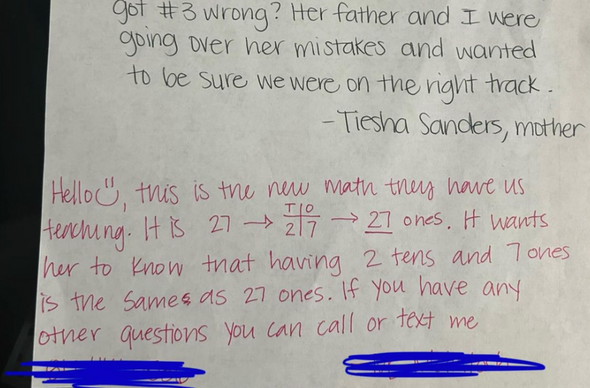 got #3 wrong? Her father and I were
going over her mistakes and wanted
to be sure we were on the right track.
- Tiesha Sanders, mother
Hello, this is the new math they have us
teaching. It is 27 → T|O 2|7 → 27 ones. It wants
her to know that having 2 tens and 7 ones
is the same as 27 ones. If you have any
other questions you can call or text me